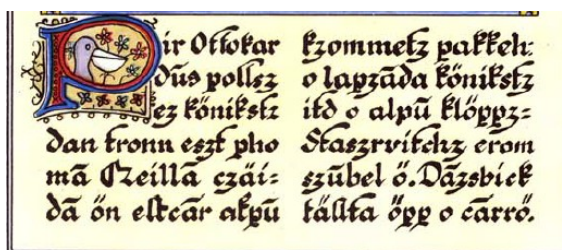 Pir Ottokar
Dūs pollsz
ez könikstz
dan tronn eszt pho
mā Czeillā czäi-
dā ön eltcār alpū
kzommetz pakkeh:
o lapzāda könikstz
itd o alpū klöppz=
Staszrvitchz erom
szūbel ö. Dāzsbick
fällta öpp o cārrö.